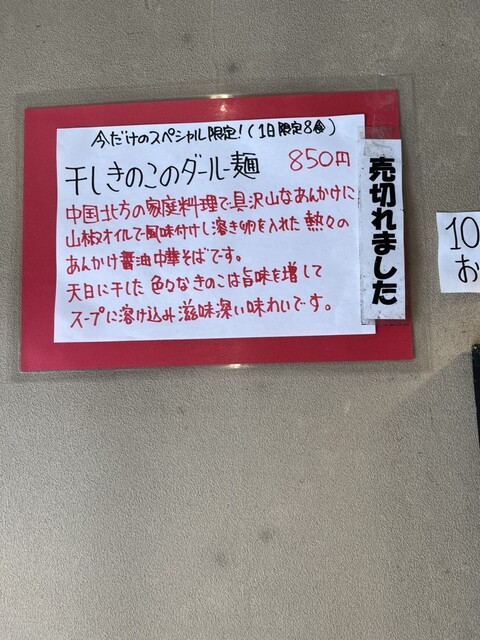 今だけのスペシャル限定!(1日限定8食)
干しきのこのダールー麺 850円
中国北方の家庭料理で具沢山なあんかけに
山椒オイルで風味付けし溶き卵を入れた熱々の
あんかけ醤油中華そばです。
天日に干した色々なきのこは旨味を増して
スープに溶け込み滋味深い味わいです。
売切れました
10
お